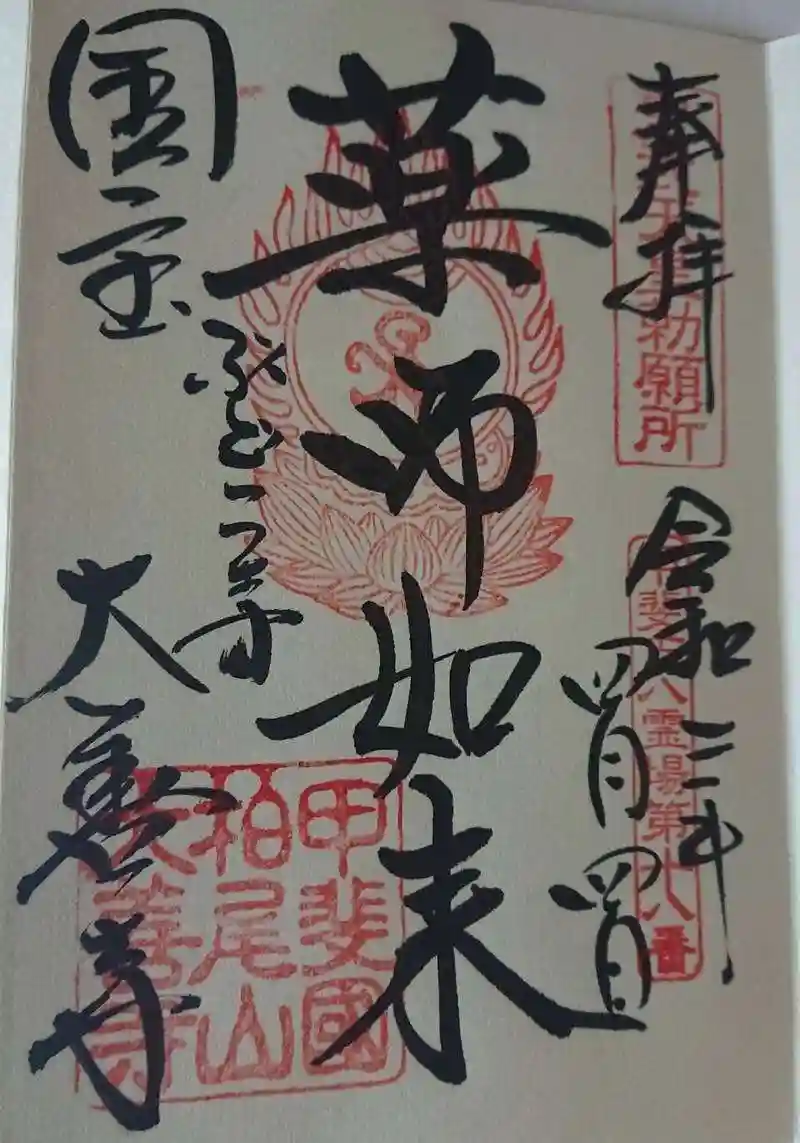 奉拝
勅願所
令和三年
四月四日
甲斐百八霊場第十八番
薬師如来
国宝
ぶどう寺
大善寺
甲斐國
柏尾山
大善寺